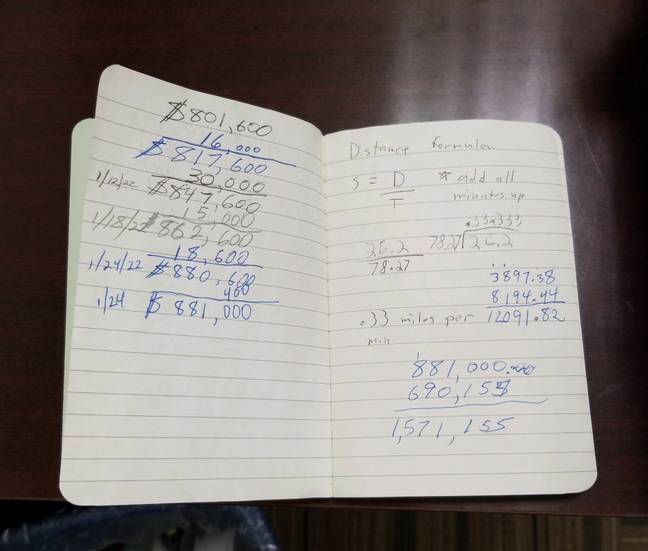 $801,600
16,000
$817,600
30,000
1/12/22 $847,600
15,000
1/18/22 $862,600
18,600
1/24/22 $880,600
400
1/24 $881,000
Distance formulan
S = D * add all
T minutes up
.33333
26.2 78.27 26.2
78.27
3897.38
8194.44
.33 miles per 12091.82
Min
1
881,000.00
690,155
1,571,155